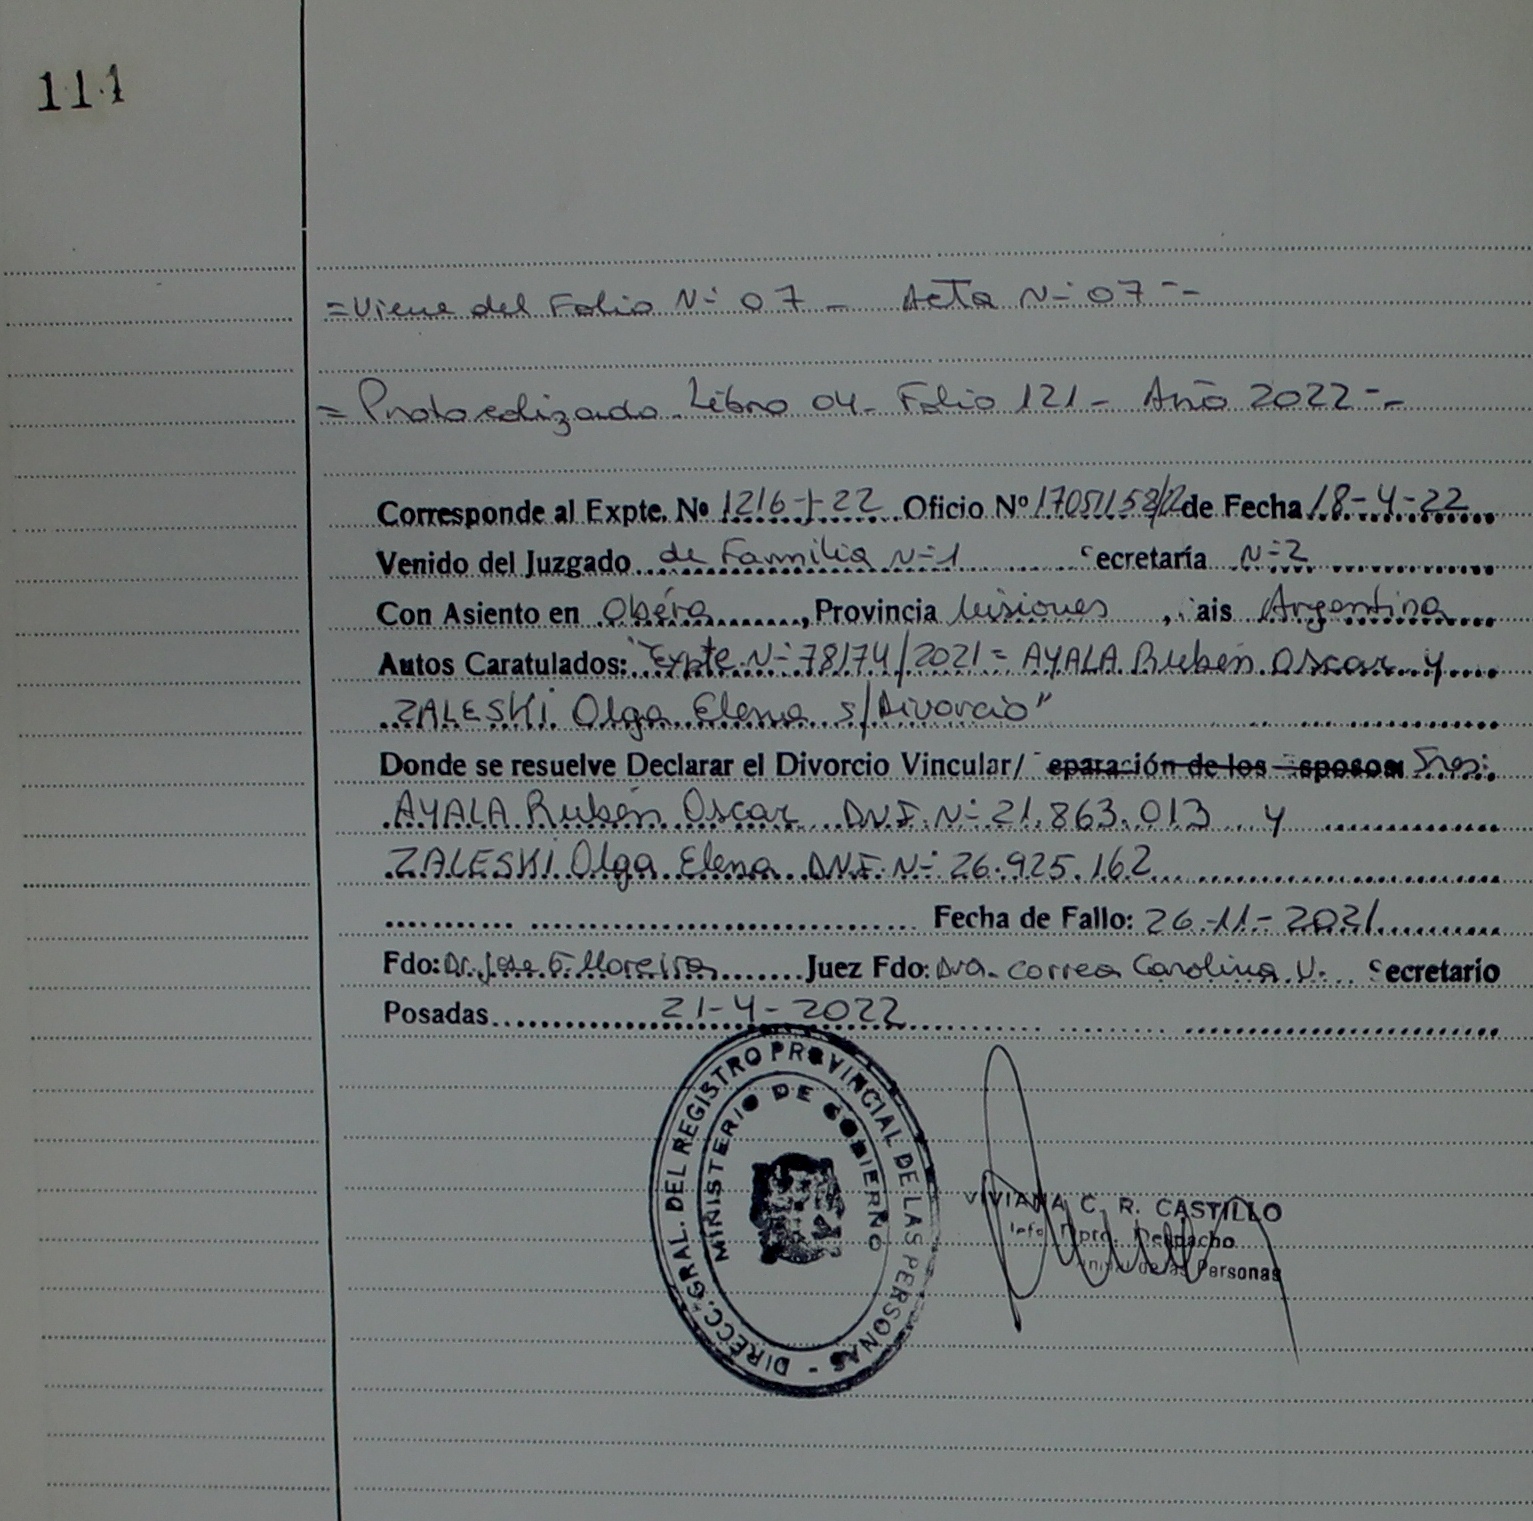 111
=Viene del Folio N- 07 - Acta N- 07 --
= Protocolizado Libro 04- Folio 121 - Año 2022 --
Corresponde al Expte. Nº 1216-J-22 Oficio Nº de Fecha 18-4-22
Venido del Juzgado de Familia N-1 ecretaría N-2
Con Asiento en Oberá, Provincia Misiones, ais Argentina
Autos Caratulados: "Expte N- 78174/2021 = AYALA Rubén Oscar y
ZALESKI Olga Elena s/Divorcio"
Donde se resuelve Declarar el Divorcio Vincular/ eparación de los sposos Sres:
AYALA Rubén Oscar D.N.I. N- 21.863.013 y
ZALESKI Olga Elena D.N.I. N- 26.925.162
Fecha de Fallo: 26-11-2021
Fdo: Dr. Jose G. Moreira Juez Fdo: Dra. Correa Carolina V. Secretario
Posadas 21-4-2022
DIRECC. GRAL. DEL REGISTRO PROVINCIAL DE LAS PERSONAS -
MINISTERIO DE GOBIERNO
VIVIANA C. R. CASTILLO
Jefe Dpto. Despacho
de las Personas